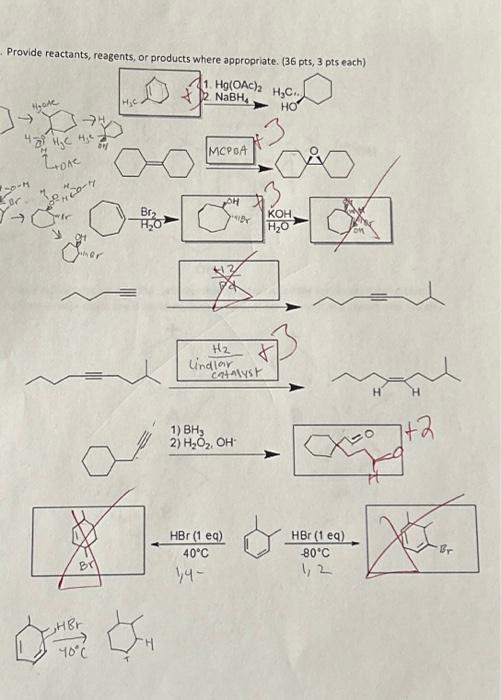 . Provide reactants, reagents, or products where appropriate. (36 pts, 3 pts each)
H3C
+3
1. Hg(OAc)2
2. NaBH4
H3C
HO
HgOAc
H3C
H
OH
MCPBA
+3
O
Br2
H2O
OH
Br
+3
KOH
H2O
OH
Br
H2
Pd
H2
Lindlar
catalyst
+3
H H
1) BH3
2) H2O2, OH-
O
H
+2
Br
HBr (1 eq)
40°C
1,4-
HBr (1 eq)
-80°C
1,2
Br
HBr
40°C
H